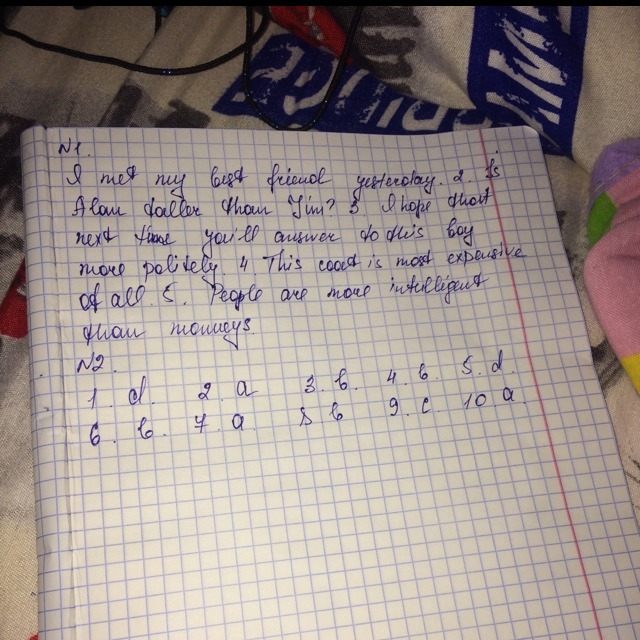 N1.
I met my best friend yesterday. 2 Is
Alan taller than Jim? 3 I hope that
next time you'll answer to this boy
more politely. 4 This coat is most expensive
of all. 5. People are more intelligent
than monkeys.
N2.
1. d. 2. a 3. b. 4. b. 5. d.
6. b. 7. a. 8 b 9. c. 10. a.